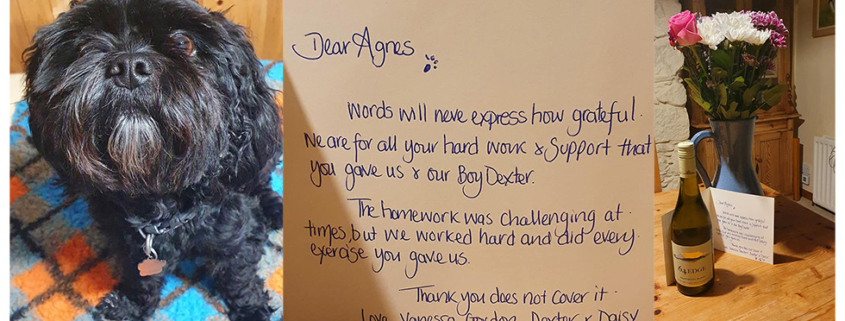 Dear Agnes
Words will neve express how grateful.
We are for all your hard work & Support that
you gave us & our Boy Dexter.
The homework was challenging at
times, but we worked hard and did every
exercise you gave us.
Thank you does not cover it.
Love Vanessa, Gordon, Dexter & Daisy
EDGE